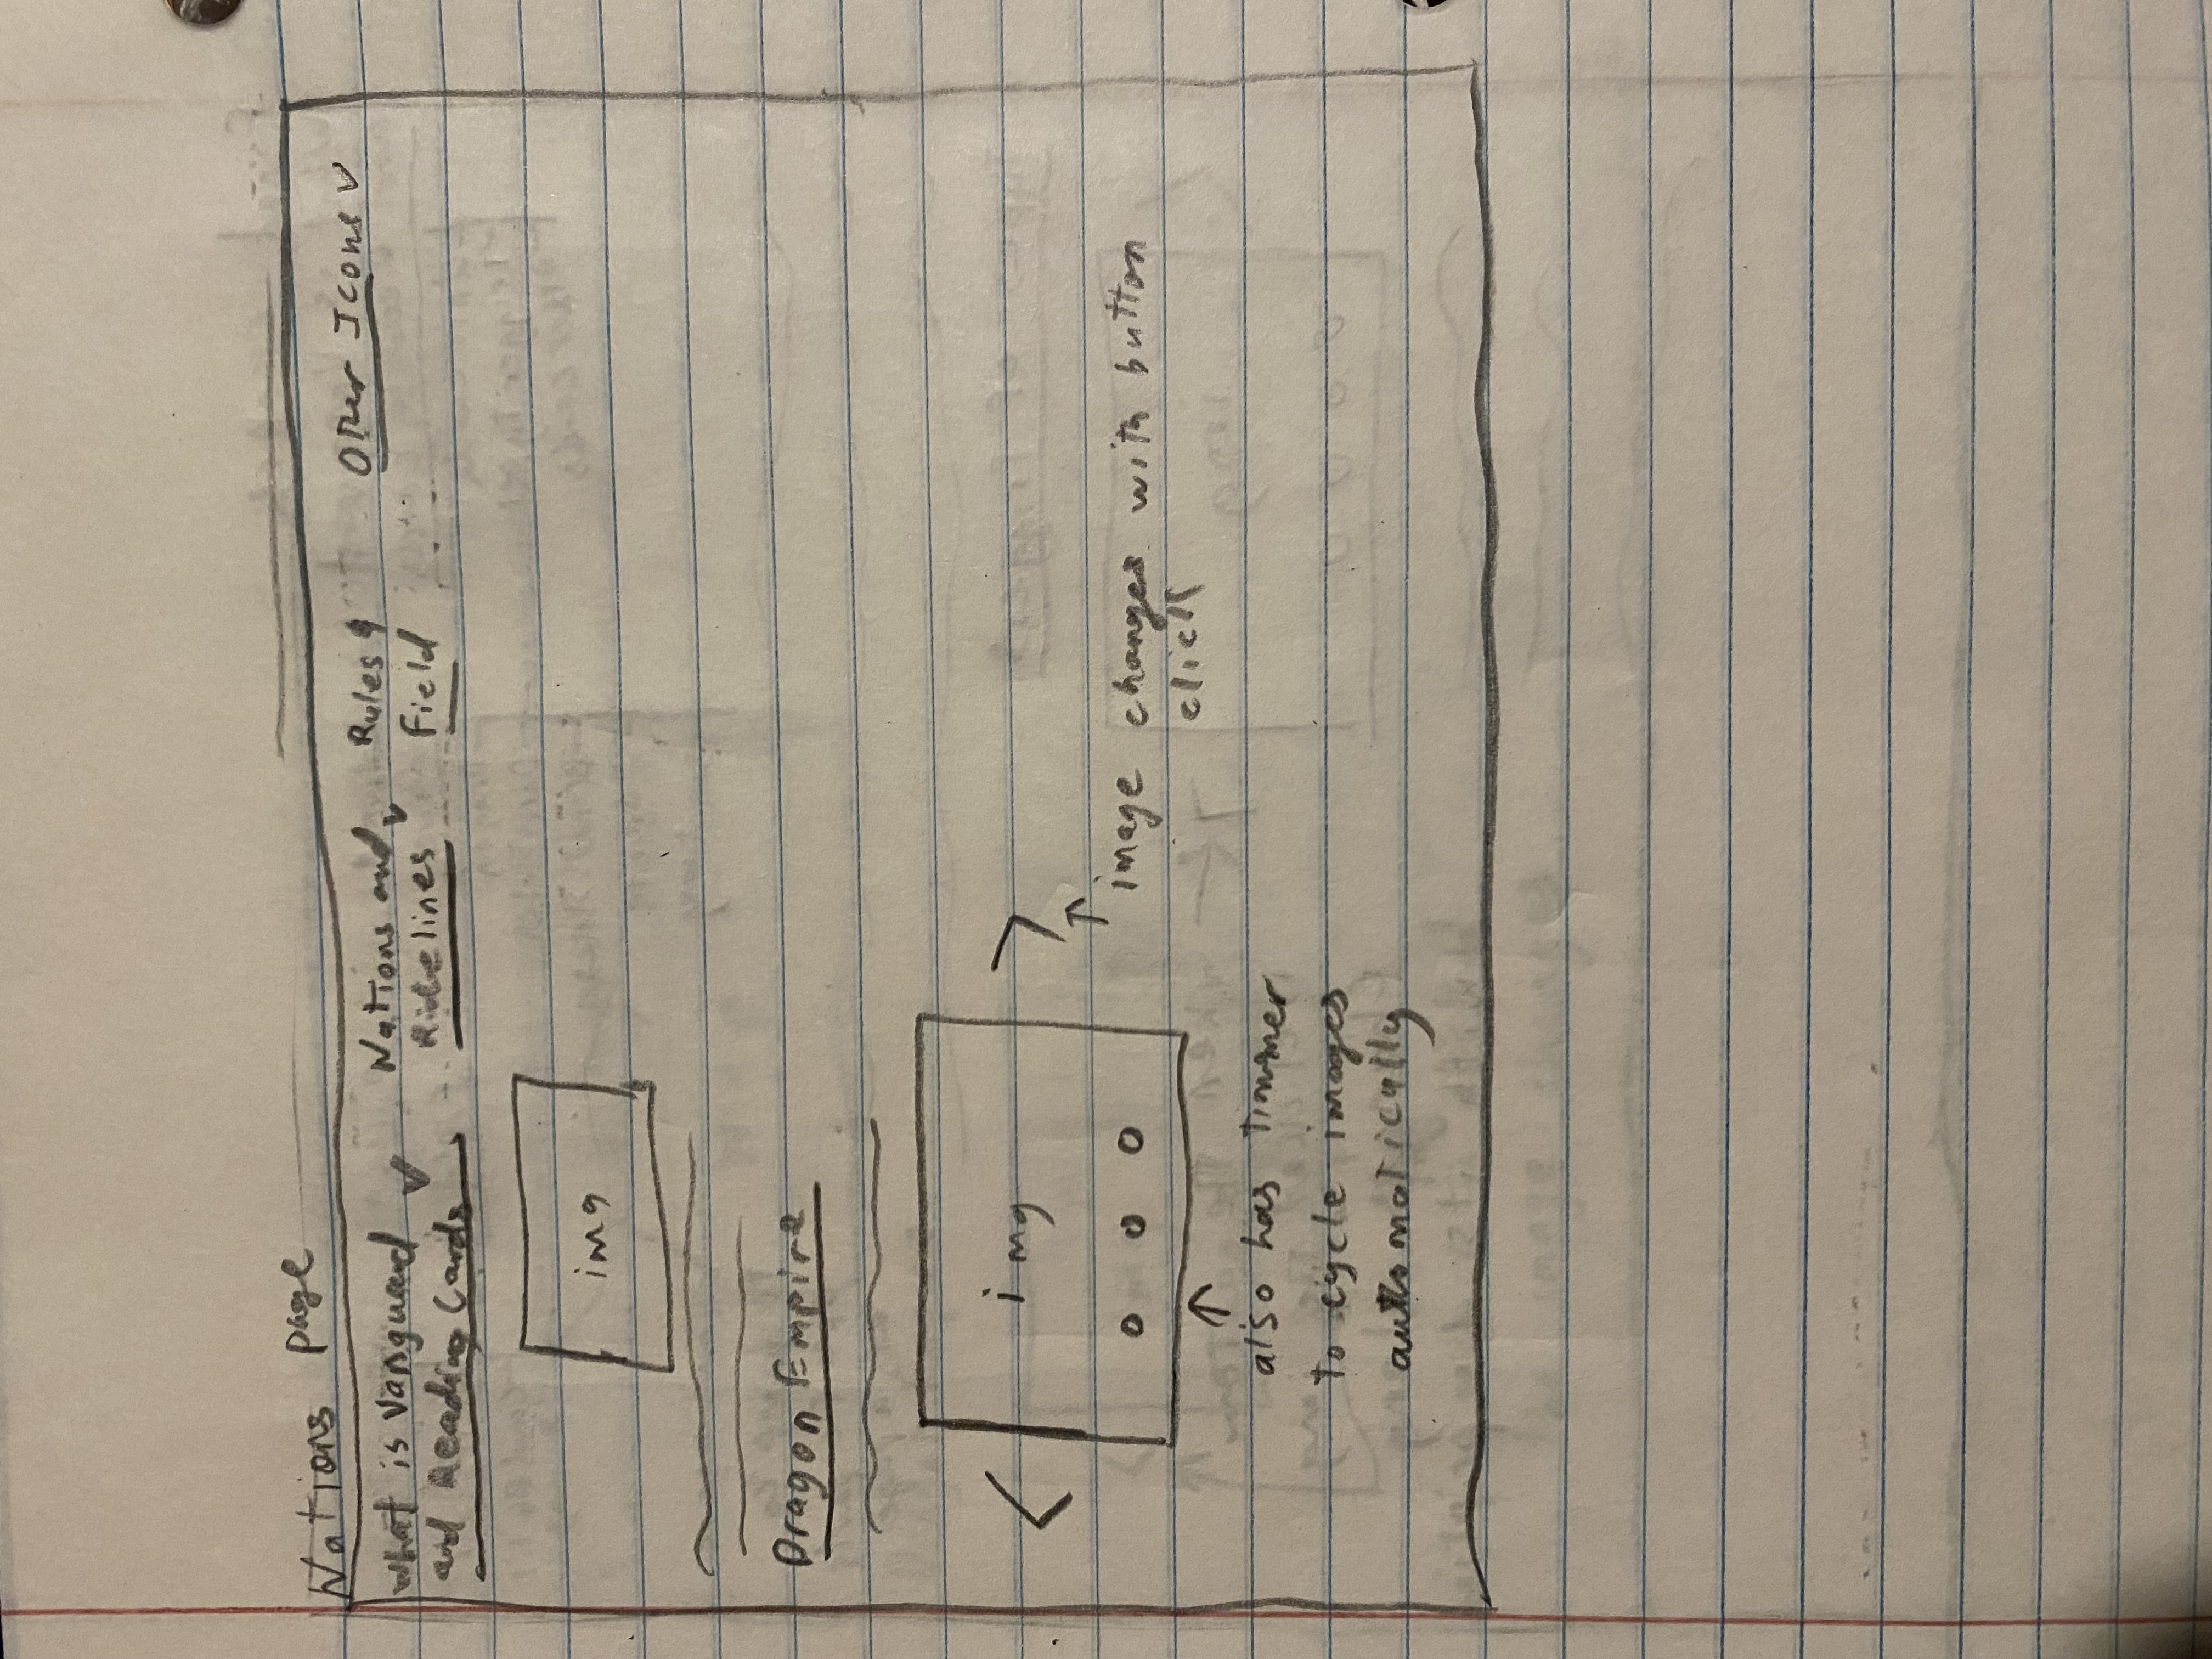 Nations page
What is Vanguard
and Reading Cards
Nations and
Ridelines
Rules &
Field
Other Icons
img
Dragon Empire
img
image changes with button
click
also has timmer
to cycle images
automatically